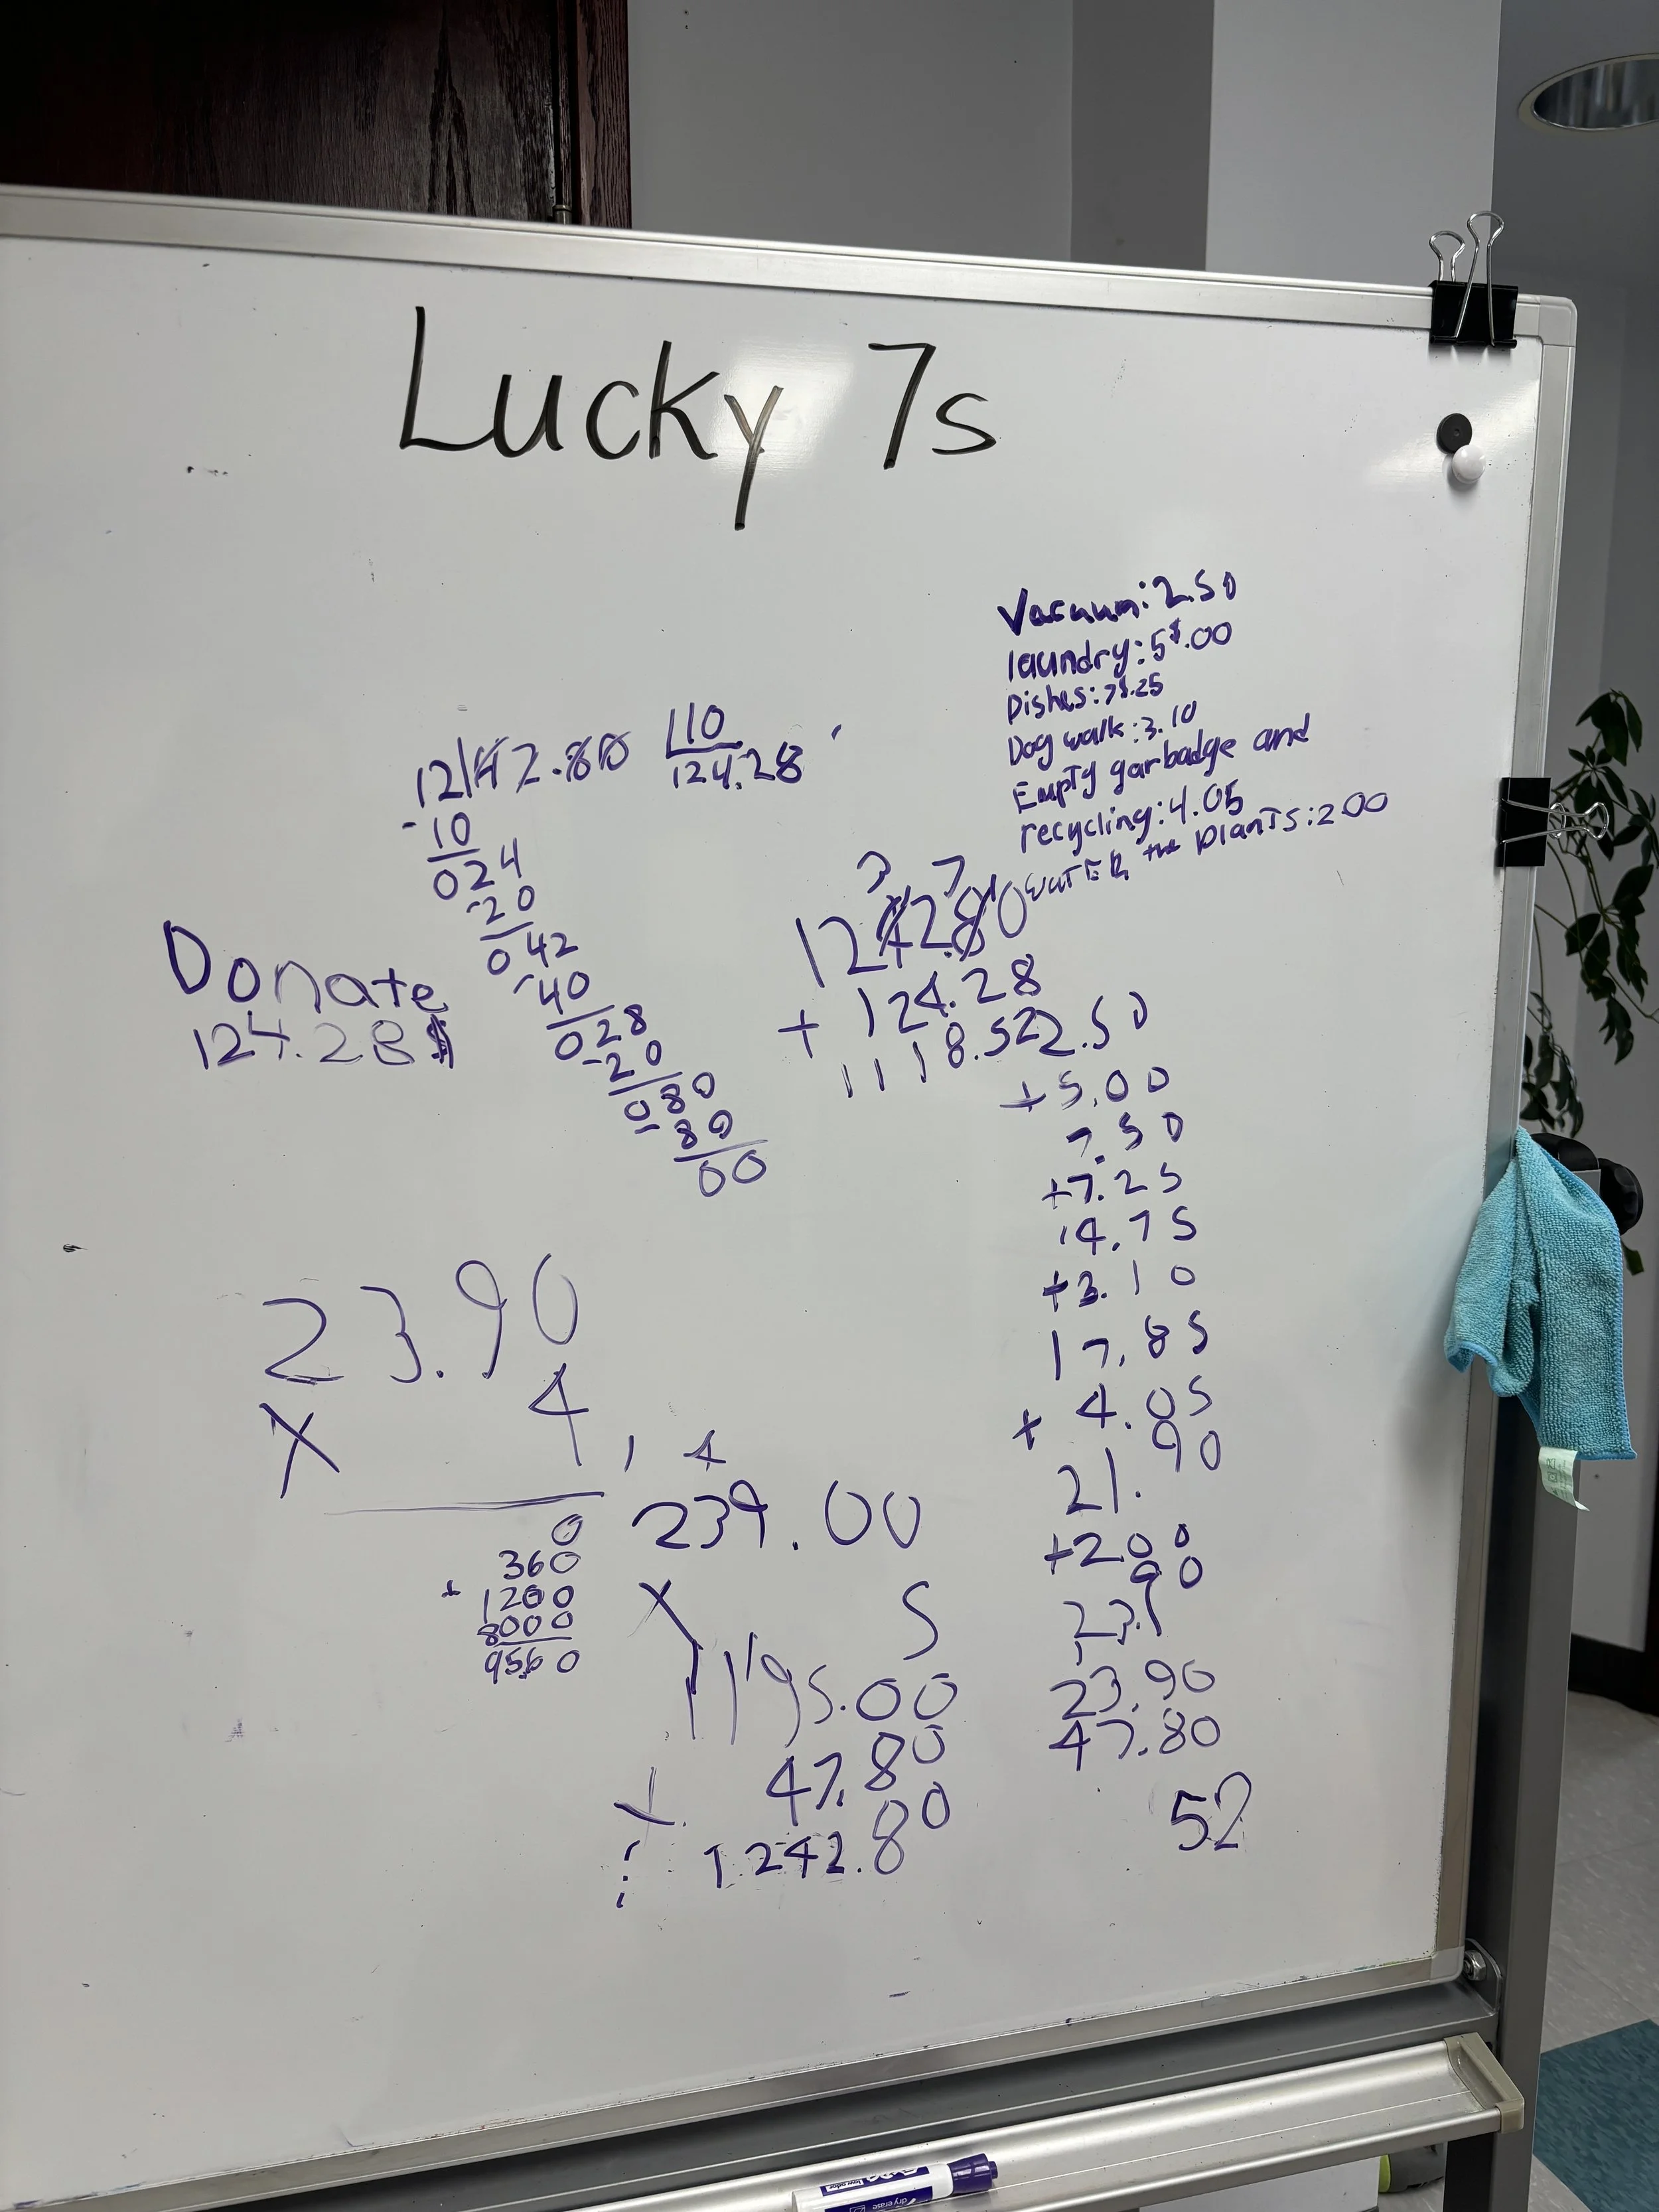 Lucky 7s
Vacuum: 2.50
laundry: 5$.00
Dishes: 7$.25
Dog walk: 3.10
Empty garbadge and
recycling: 4.05
WATER the plants: 2.00
12|42.80 |10
124.28
-10
024
-20
042
-40
028
-20
080
-80
00
Donate
124.28$
3 7
1242.80
+ 124.28
1118.52
2.50
+5.00
7.50
+7.25
14.75
+3.10
17.85
+ 4.05
21.90
+2.00
23.90
23.90
47.80
52
23.90
X 4
0
360
+ 1200
8000
9560
1 4
239.00
X 5
1195.00
47.80
1242.80
dry erase
low odor